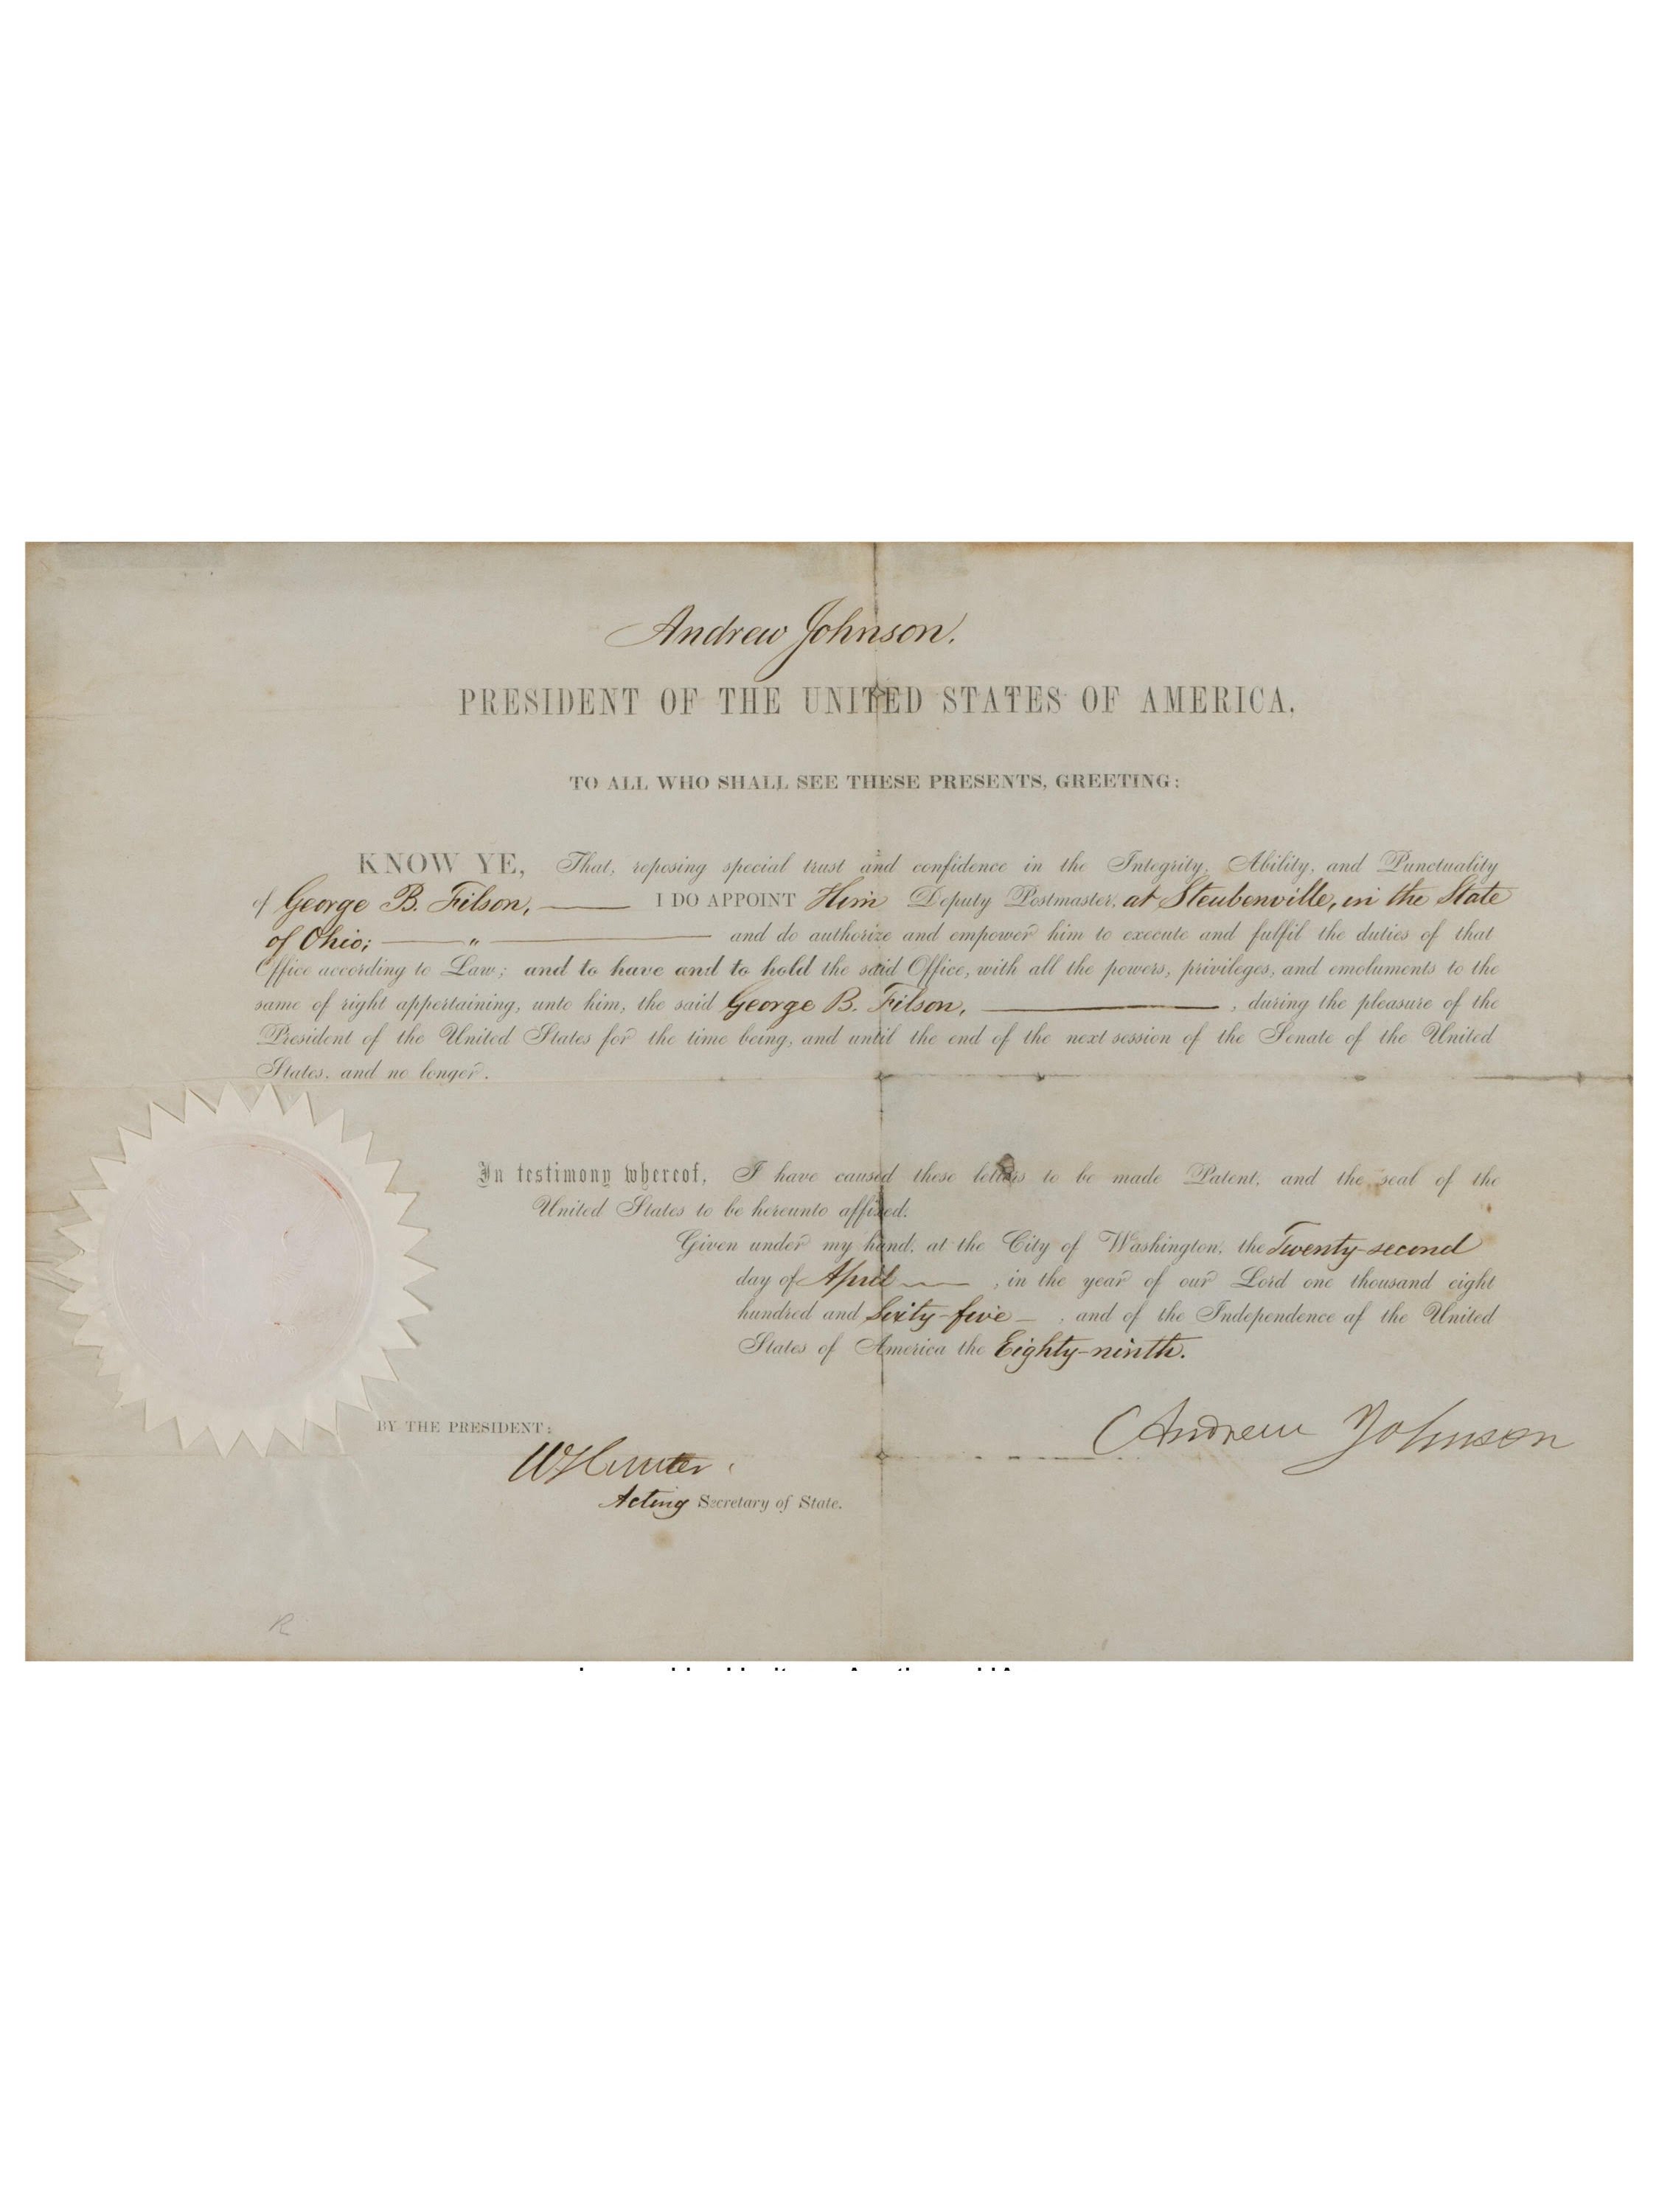 Andrew Johnson.
PRESIDENT OF THE UNITED STATES OF AMERICA,
TO ALL WHO SHALL SEE THESE PRESENTS, GREETING:
KNOW YE, That, reposing special trust and confidence in the Integrity, Ability, and Punctuality
of George B. Filson, I DO APPOINT Him Deputy Postmaster, at Steubenville, in the State
of Ohio; " and do authorize and empower him to execute and fulfil the duties of that
Office according to Law; and to have and to hold the said Office, with all the powers, privileges, and emoluments to the
same of right appertaining, unto him, the said George B. Filson, , during the pleasure of the
President of the United States for the time being, and until the end of the next session of the Senate of the United
States, and no longer.
In testimony whereof, I have caused these letters to be made Patent, and the seal of the
United States to be hereunto affixed.
Given under my hand, at the City of Washington, the Twenty-second
day of April , in the year of our Lord one thousand eight
hundred and Sixty-five , and of the Independence af the United
States of America the Eighty-ninth.
Andrew Johnson
BY THE PRESIDENT:
W Hunter
Acting Secretary of State.
R